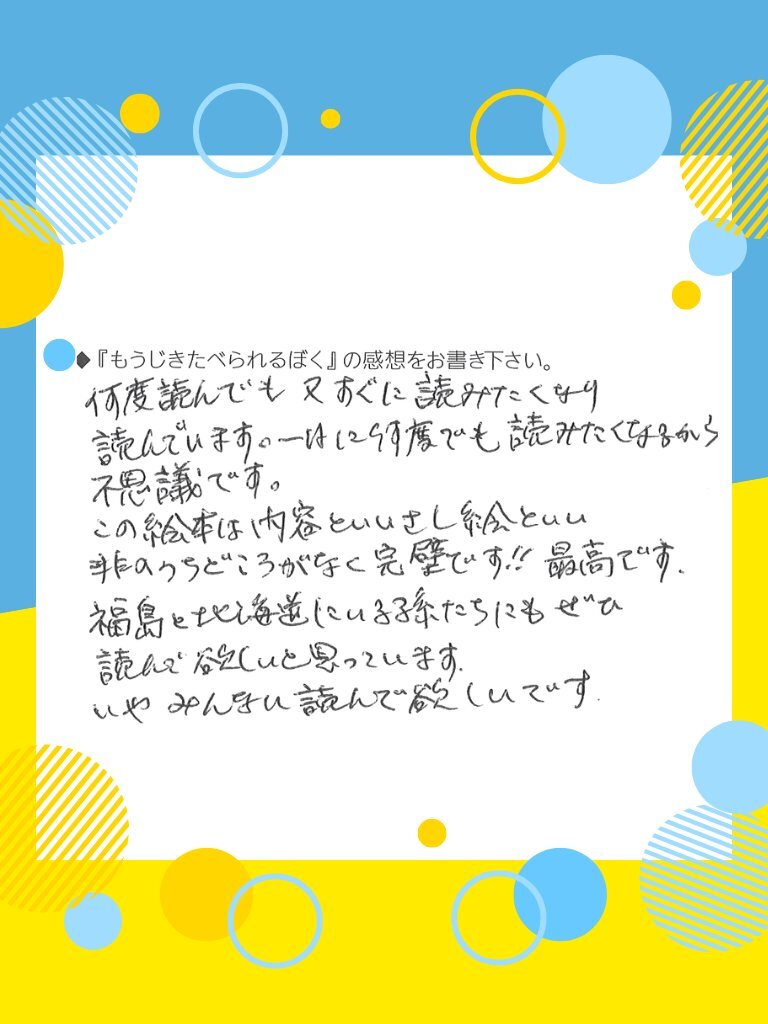 ◆『もうじきたべられるぼく』の感想をお書き下さい。
何度読んでも 又すぐに読みたくなり
読んでいます。一日に何度でも読みたくなるから
不思議です。
この絵本は内容といいさし絵といい
非のうちどころがなく完璧です!! 最高です.
福島と北海道にいる子孫たちにもぜひ
読んで欲しいと思っています.
いや みんなに読んで欲しいです.